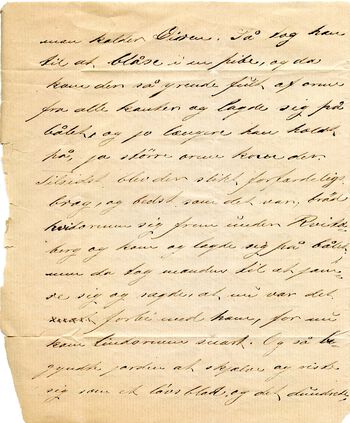 man kalder Eisen. Så tog han
til at blåse i en pibe, og da
kom der så yrende fuldt af orme
fra alle kanter og lagde sig på
bålet, og jo længere han holdt
på, jo större orme kom der
Tilsidst blev der slikt forfærdeligt
brag, og bedst som det var, brød
hvidormen sig frem under
berg og kom og lagde sig på bålet
men da tog manden til at jam-
re sig og sagde, at nu var det
forbi med ham, for nu
kom lindormen snart. Og så be-
gyndte jorden at skjælve og ryste
sig som et løvsblad, og det dundrede